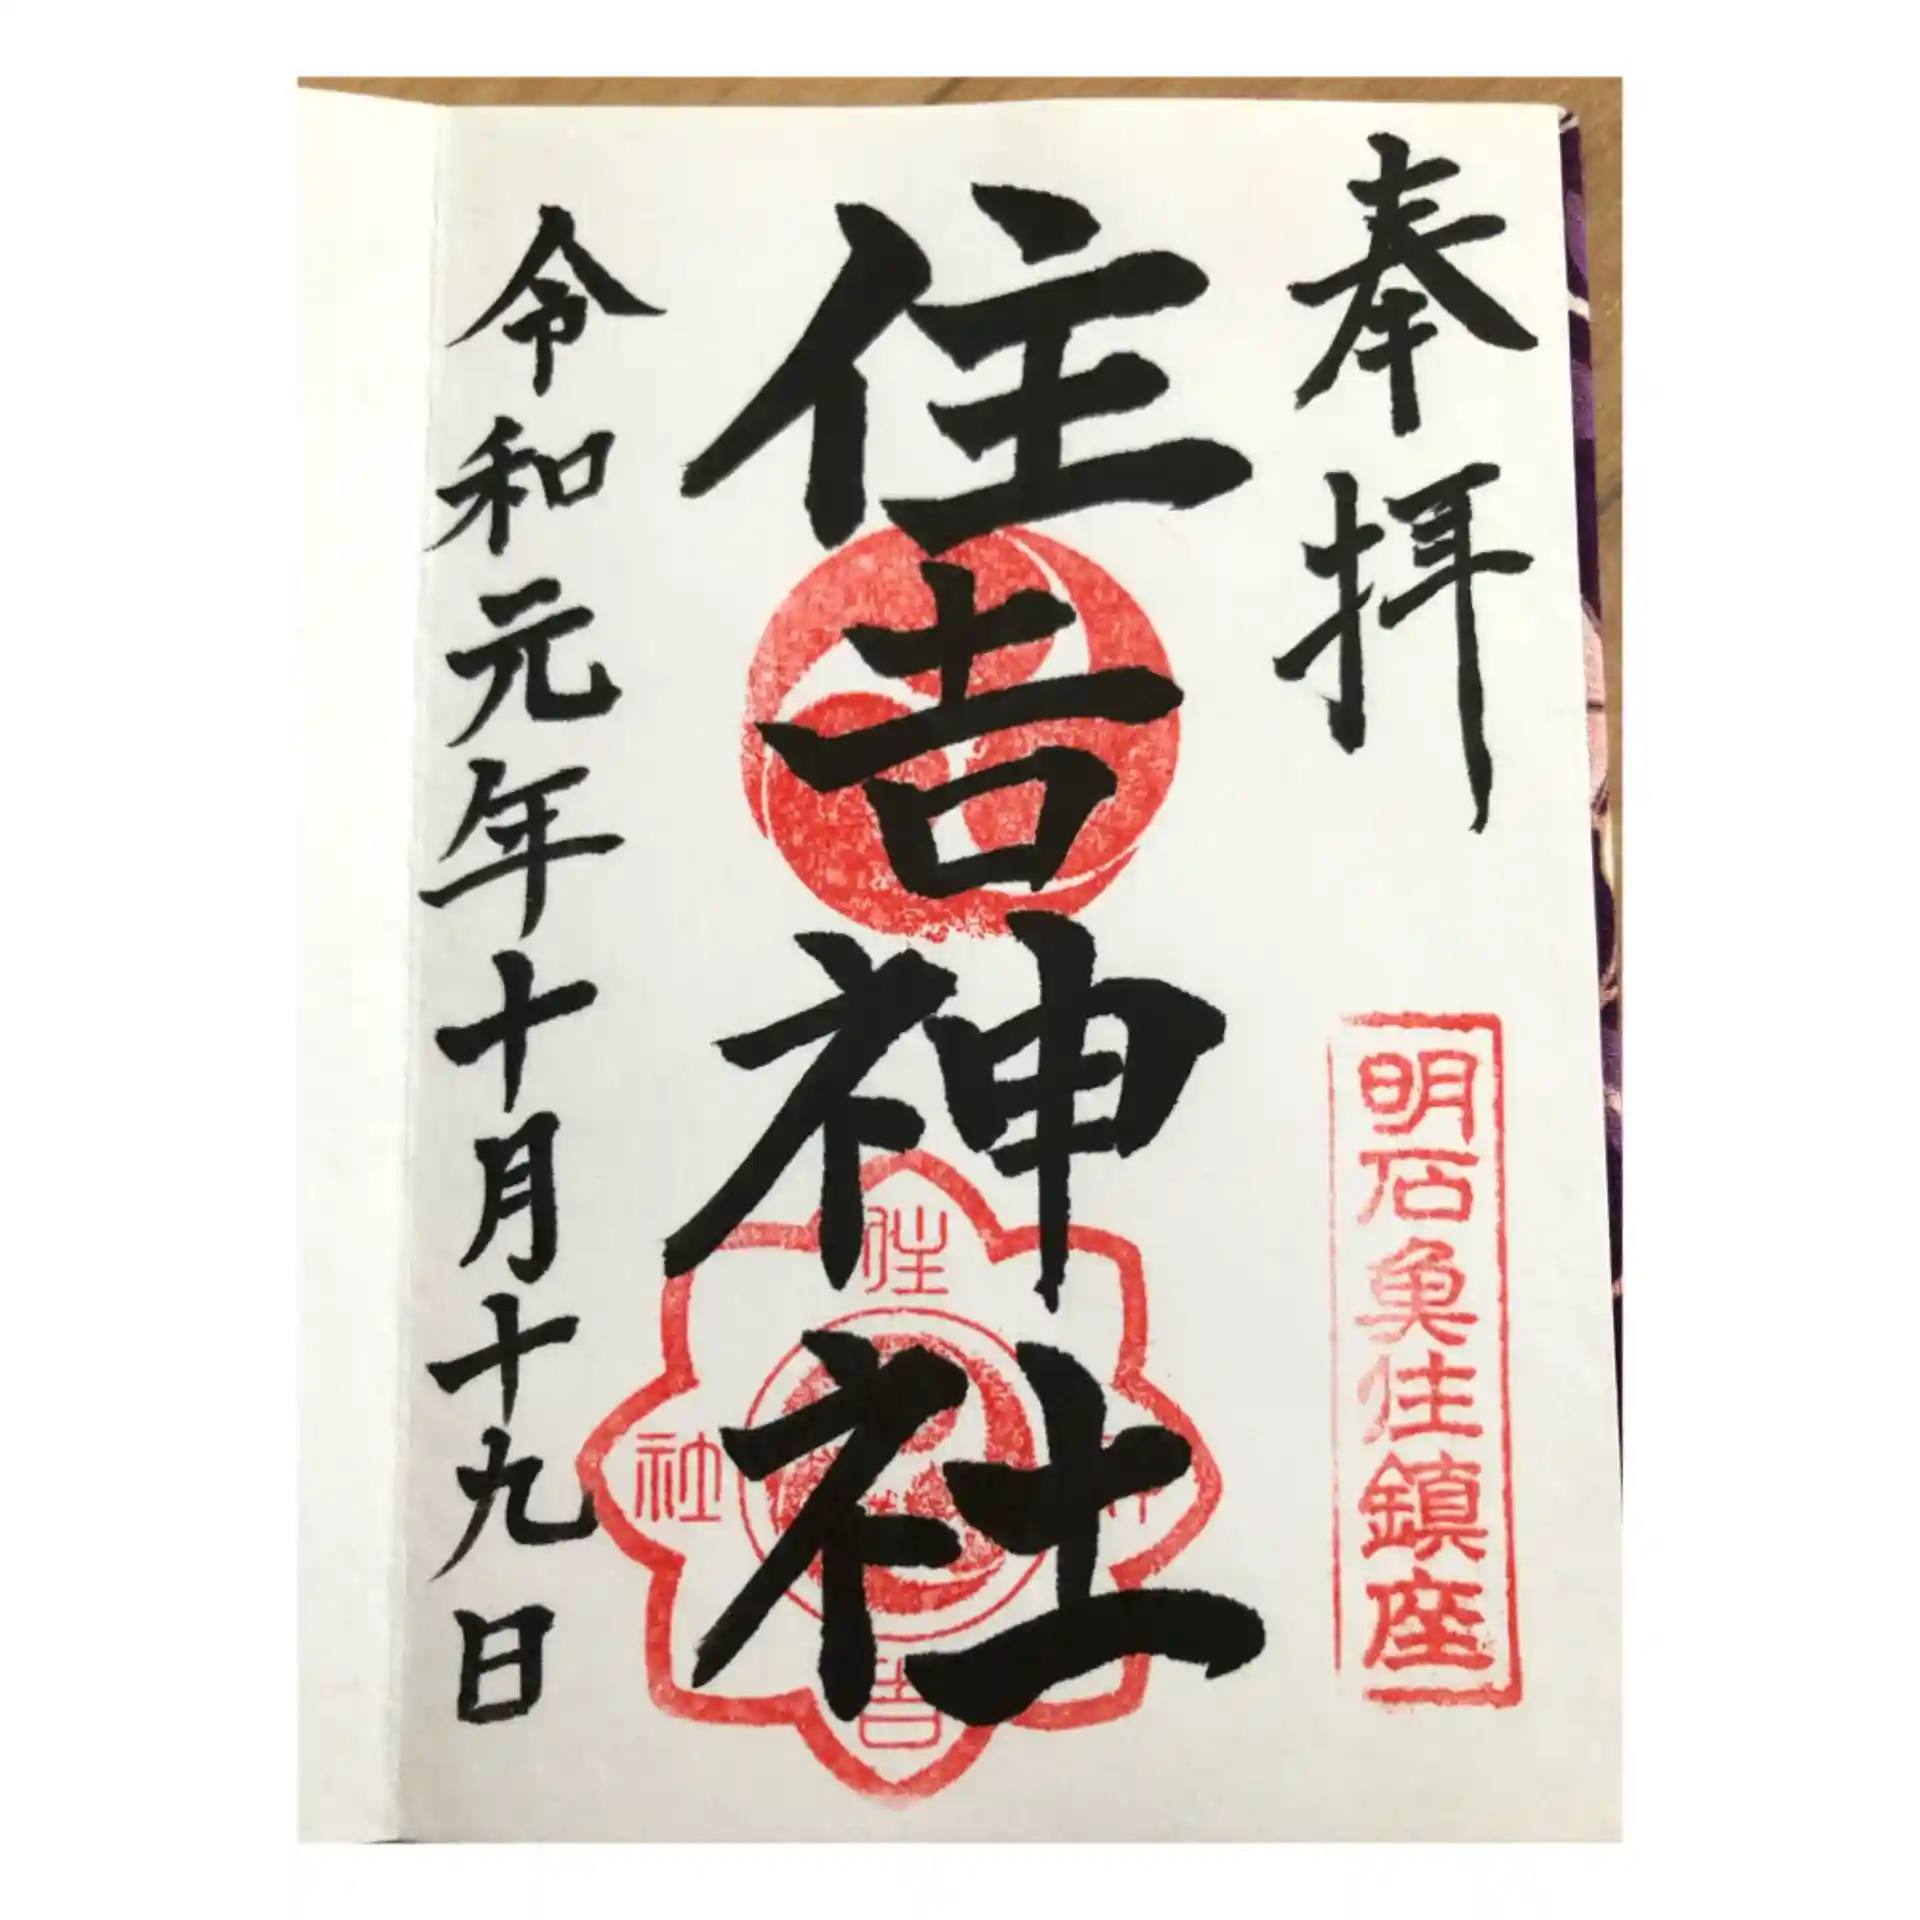 奉拝
明石魚住鎮座
住吉神社
住
吉
社
令和元年十月十九日